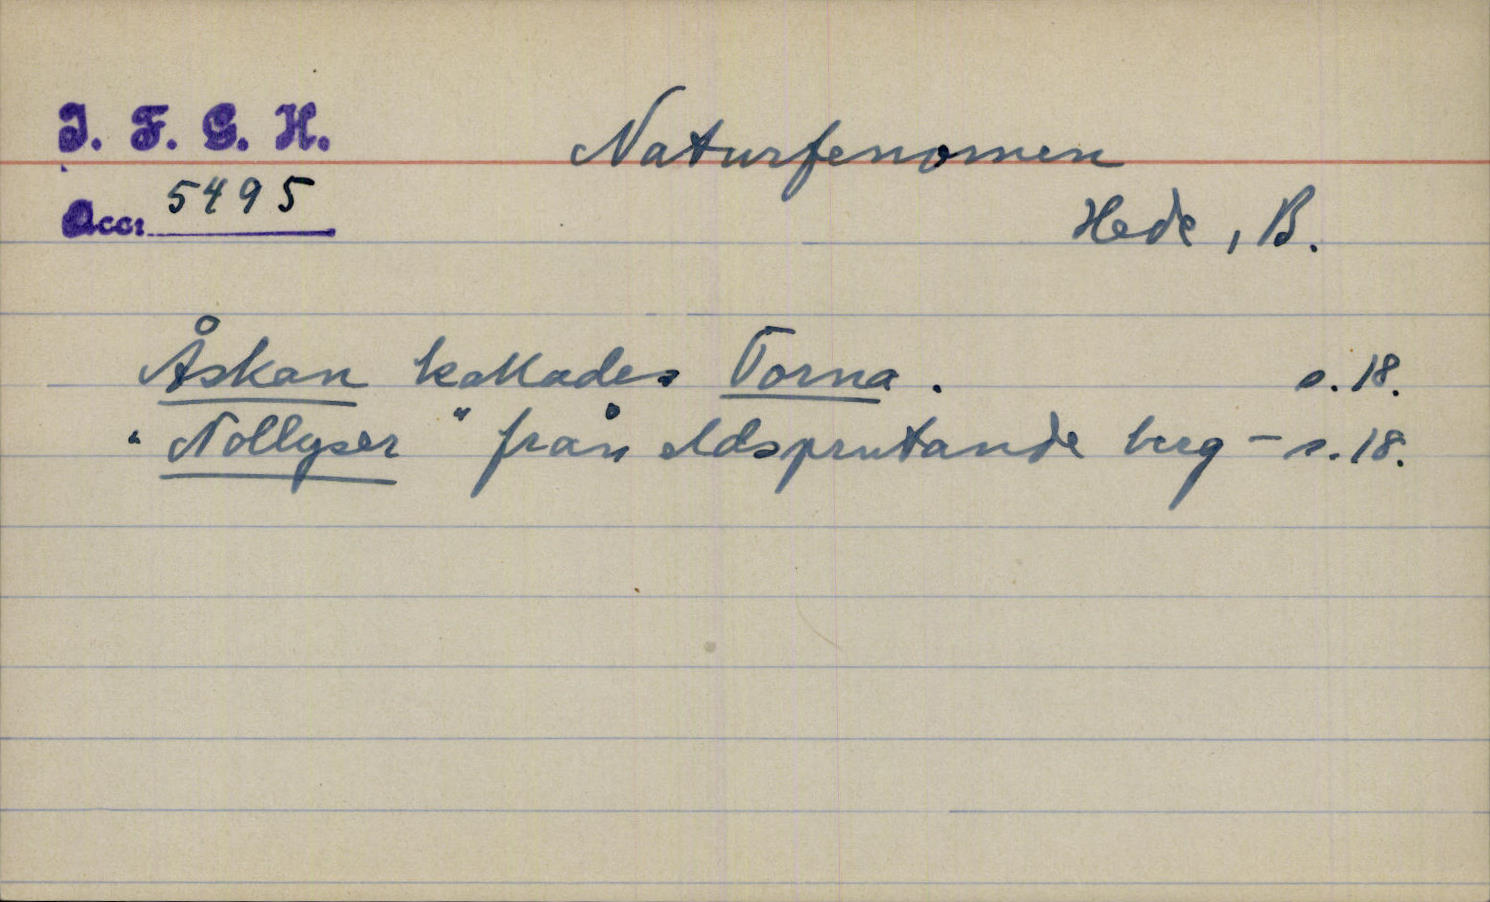 I. F. G. H.
Naturfenomen
Accr 5495
Hede, B.
Åskan kallades Torna. s. 18.
"Nollyser" från eldsprutande berg – s. 18.